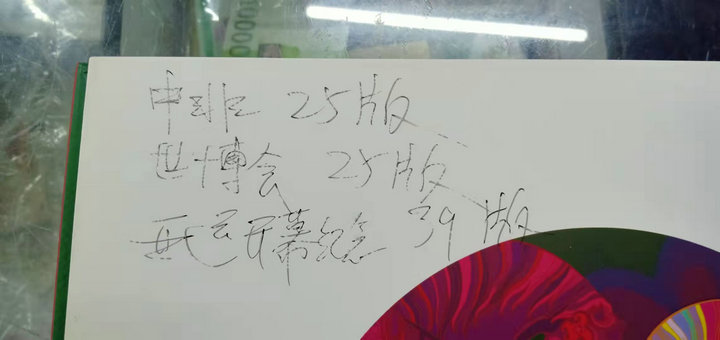 中 25版
世博会 25版
亚运开幕纪念 39版